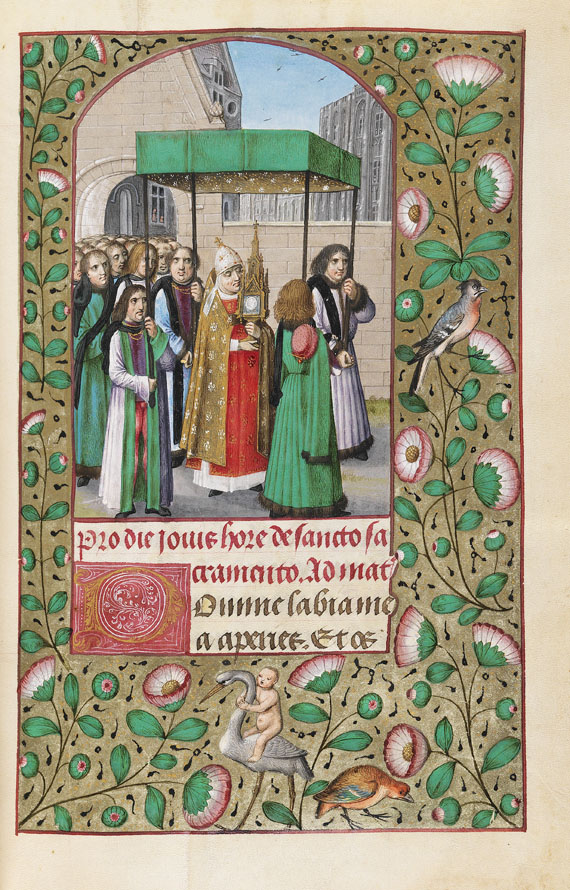 Pro die iouis hore de sancto sa
cramento. Ad mat̃
Domine labia me
a aperies. Et os